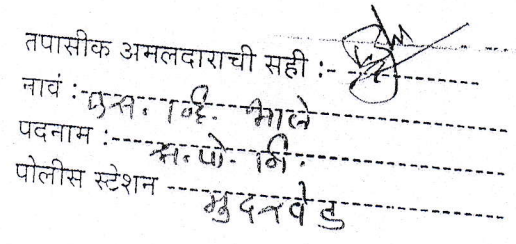 तपासीक अमलदाराची सही :-
नावं :- एस. व्हि. भाले
पदनाम :- स. पो. नि.
पोलीस स्टेशन --- मुदखेड